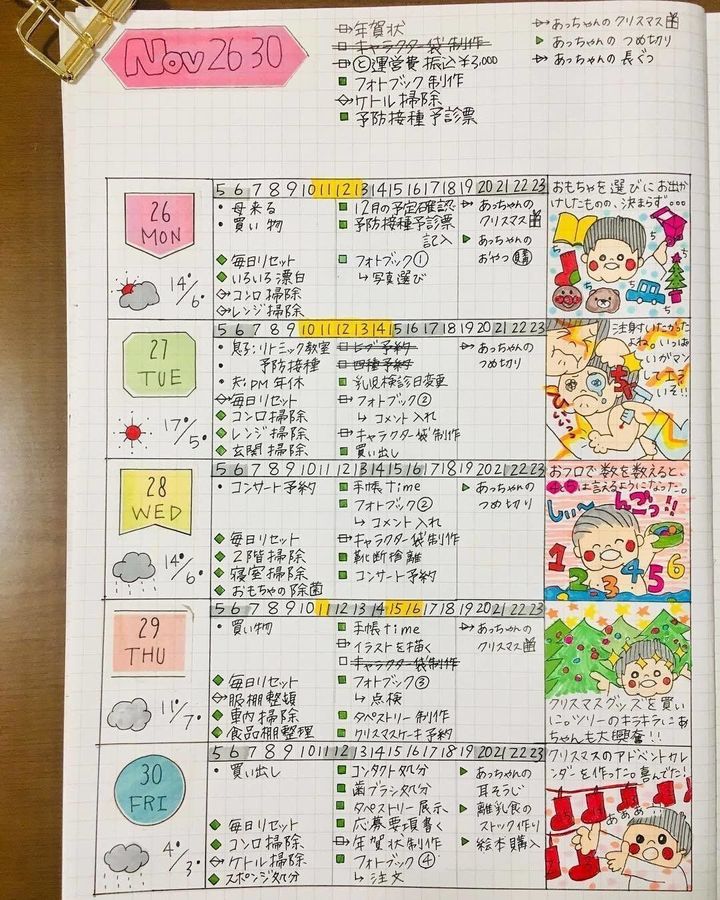 Nov 26 30
年賀状
キャラクター袋制作
と運営費振込¥3,000
フォトブック制作
ケトル掃除
予防接種予診票
あっちゃんのクリスマス
あっちゃんのつめ切り
あっちゃんの長ぐつ
26
MON
14°/6°
5 6 7 8 9 10 11 12 13 14 15 16 17 18 19 20 21 22 23
・母来る
・買い物
毎日リセット
いろいろ漂白
コンロ掃除
レンジ掃除
12月の予定確認
予防接種予診票
記入
フォトブック①
↳写真選び
あっちゃんの
クリスマス
あっちゃんの
おやつ購
おもちゃを選びにお出か
けしたものの、決まらず...
ち
ち
ち
ち
27
TUE
17°/5°
5 6 7 8 9 10 11 12 13 14 15 16 17 18 19 20 21 22 23
・息子:リトミック教室
・予防接種
・夫:PM年休
毎日リセット
コンロ掃除
レンジ掃除
玄関掃除
ヒブ予約
四種予約
乳児検診日変更
フォトブック②
↳コメント入れ
キャラクター袋制作
買い出し
あっちゃんの
つめ切り
注射いたかった
よね。いっぱ
いがマン
して
ひいいっっ
28
WED
14°/6°
5 6 7 8 9 10 11 12 13 14 15 16 17 18 19 20 21 22 23
・コンサート予約
毎日リセット
2階掃除
寝室掃除
おもちゃの除菌
手帳time
フォトブック②
↳コメント入れ
キャラクター袋制作
靴断捨離
コンサート予約
あっちゃんの
つめ切り
おフロで数を数えると、
4と5は言えるようになった。
しい〜
んごっ!!
1 2 3 4 5 6
29
THU
11°/7°
5 6 7 8 9 10 11 12 13 14 15 16 17 18 19 20 21 22 23
・買い物
毎日リセット
服棚整頓
車内掃除
食品棚整理
手帳time
イラストを描く
キャラクター袋制作
フォトブック③
↳点検
タペストリー制作
クリスマスケーキ予約
あっちゃんの
クリスマス
クリスマスグッズを買い
に。ツリーのキラキラにあっ
ちゃんも大興奮!!
30
FRI
4°/3°
5 6 7 8 9 10 11 12 13 14 15 16 17 18 19 20 21 22 23
・買い出し
毎日リセット
コンロ掃除
ケトル掃除
スポンジ処分
コンタクト処分
歯ブラシ処分
タペストリー展示
応募要項書く
年賀状制作
フォトブック④
↳注文
あっちゃんの
耳そうじ
離乳食の
ストック作り
絵本購入
クリスマスのアドベントカレ
ンダーを作った。喜んでた!
あぁぁ